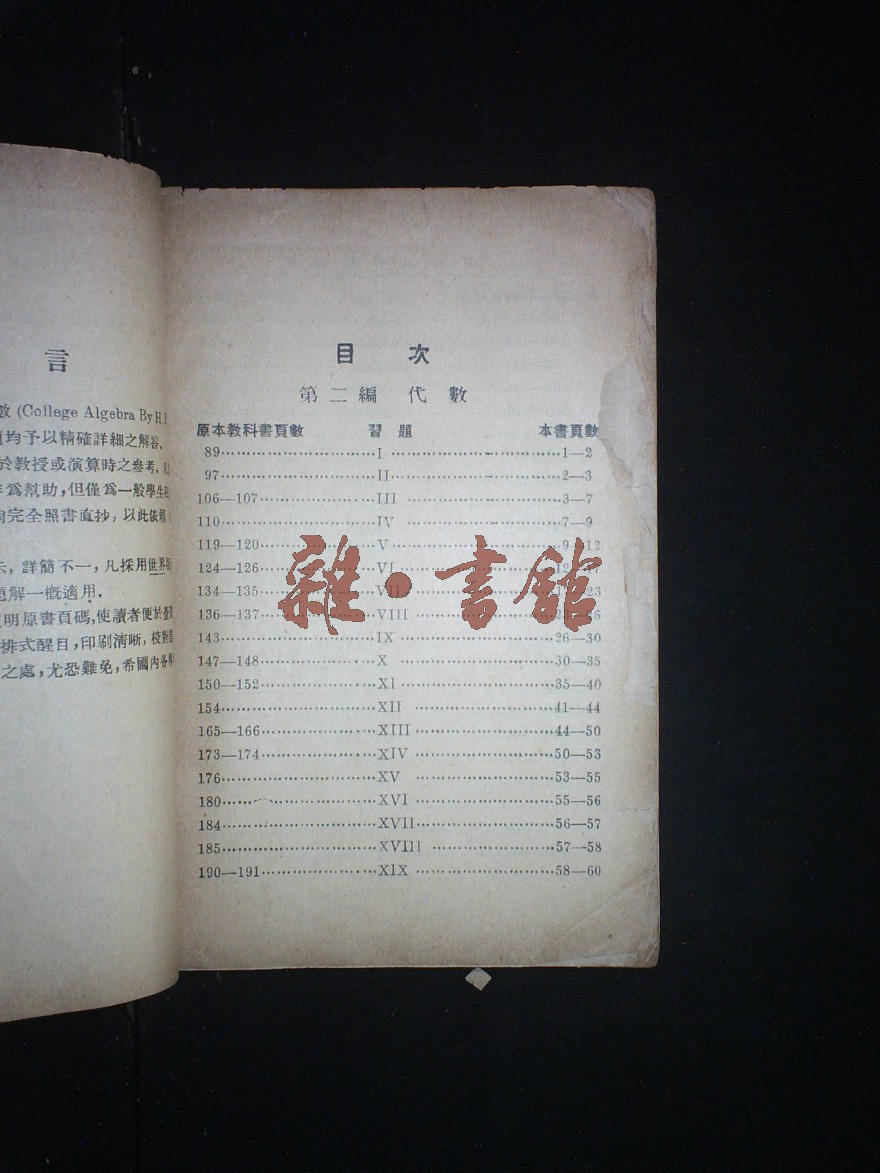 言
數 (College Algebra By H.
均予以精確詳細之解答,
於教授或演算時之參考,
爲幫助,但僅爲一般學生
完全照書直抄,以此依賴
詳簡不一,凡採用世界
題解一槪適用.
明原書頁碼,使讀者便於
排式醒目,印刷清晰,校對
之處,尤恐難免,希國內各
目 次
第二編 代數
原本敎科書頁數 習題 本書頁數
89 I 1—2
97 II 2—3
106—107 III 3—7
110 IV 7—9
119—120 V 9—12
124—126 VI 12
134—135 VII 23
136—137 VIII
143 IX 26—30
147—148 X 30—35
150—152 XI 35—40
154 XII 41—44
165—166 XIII 44—50
173—174 XIV 50—53
176 XV 53—55
180 XVI 55—56
184 XVII 56—57
185 XVIII 57—58
190—191 XIX 58—60
雜·書館